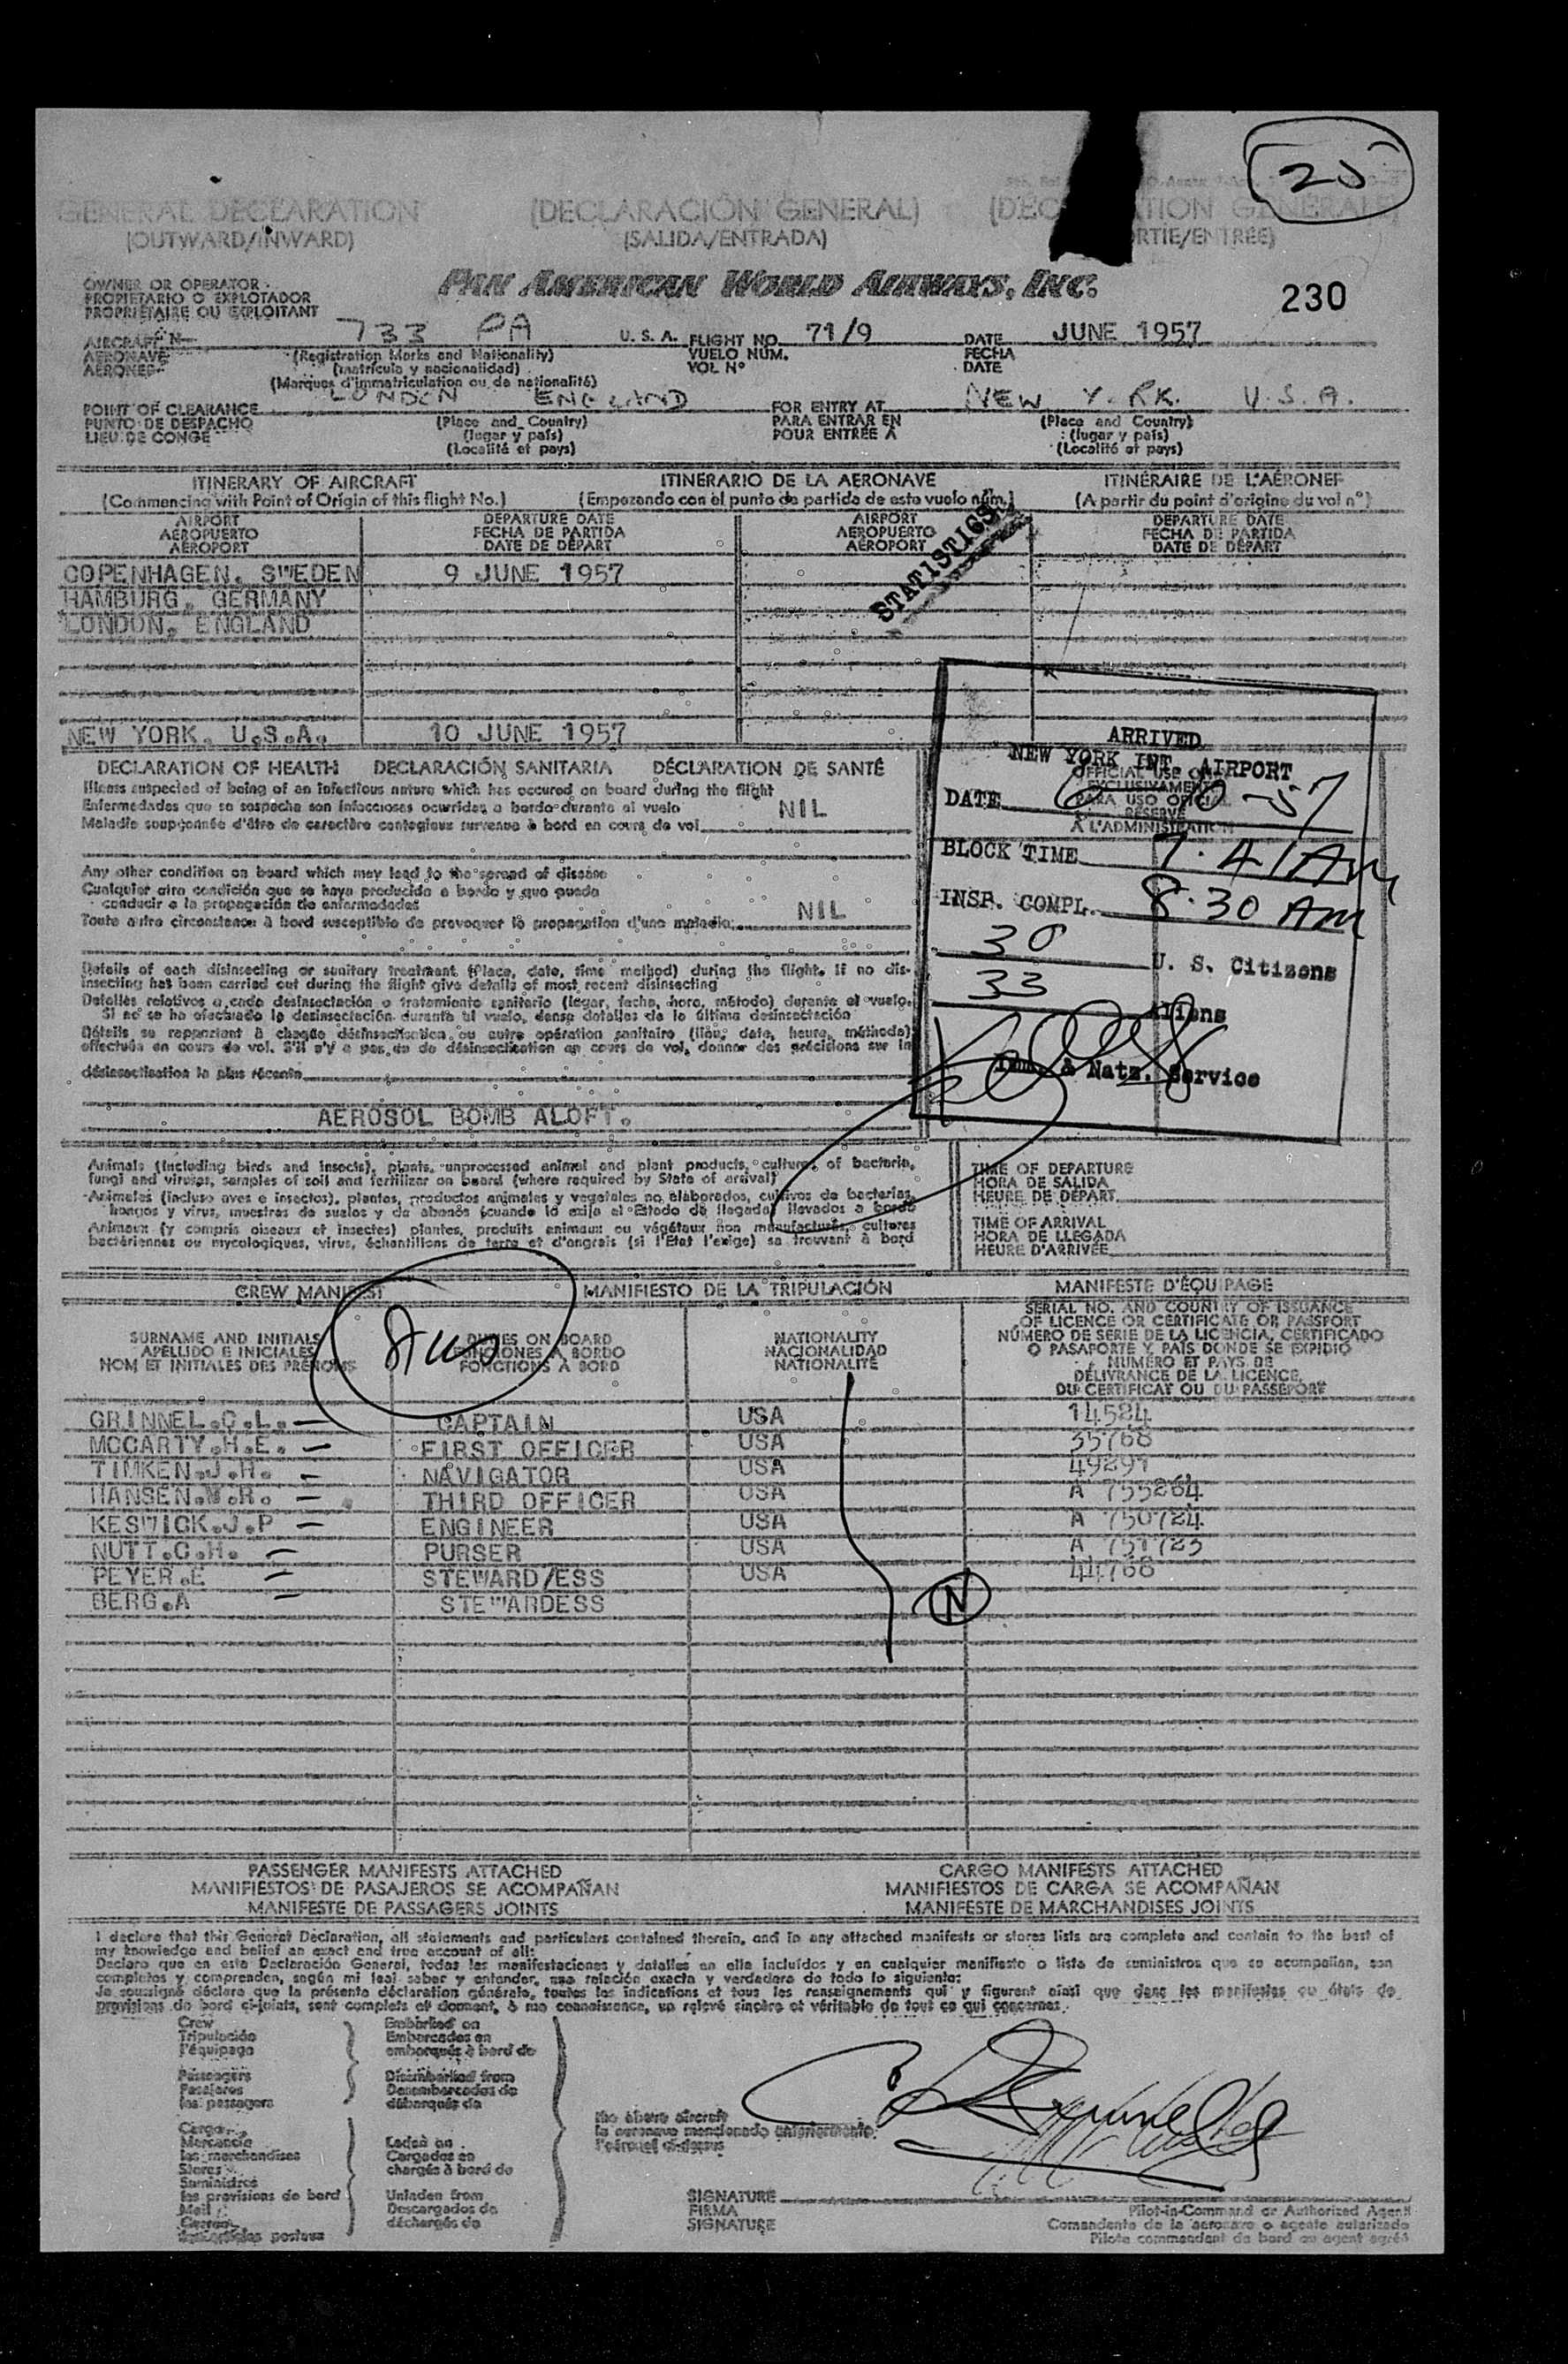 GENERAL DECLARATION (DECLARACIÓN GENERAL)
(OUTWARD/INWARD) (SALIDA/ENTRADA)
25
PAN AMERICAN WORLD AIRWAYS, INC.
OWNER OR OPERATOR
PROPIETARIO O EXPLOTADOR
PROPRIÉTAIRE OU EXPLOITANT
230
AIRCRAFT N 733 PA U.S.A. FLIGHT NO. 71/9 DATE JUNE 1957
AERONAVE (Registration Marks and Nationality) VUELO NÚM. FECHA
AÉRONEF (matrícula y nacionalidad) VOL Nº DATE
(Marques d'immatriculation ou de nationalité)
POINT OF CLEARANCE LONDON ENGLAND FOR ENTRY AT NEW Y.RK. U.S.A.
PUNTO DE DESPACHO (Place and Country) PARA ENTRAR EN (Place and Country)
LIEU DE CONGÉ (lugar y país) POUR ENTRÉE À (lugar y país)
(Localité et pays) (Localité et pays)
ITINERARY OF AIRCRAFT ITINERARIO DE LA AERONAVE ITINÉRAIRE DE L'AÉRONEF
(Commencing with Point of Origin of this flight No.) (Empezando con el punto de partida de este vuelo núm.) (A partir du point d'origine du vol nº)
AIRPORT DEPARTURE DATE AIRPORT DEPARTURE DATE
AEROPUERTO FECHA DE PARTIDA AEROPUERTO FECHA DE PARTIDA
AÉROPORT DATE DE DÉPART AÉROPORT DATE DE DÉPART
STATISTICS
COPENHAGEN. SWEDEN 9 JUNE 1957
HAMBURG, GERMANY
LONDON, ENGLAND
NEW YORK. U.S.A. 10 JUNE 1957
DECLARATION OF HEALTH DECLARACIÓN SANITARIA DÉCLARATION DE SANTÉ
Illness suspected of being of an infectious nature which has occured on board during the flight
Enfermedades que se sospecha son infecciosas ocurridas a bordo durante el vuelo NIL
Maladie soupçonnée d'être de caractère contagieux survenue à bord en cours de vol
Any other condition on board which may lead to the spread of disease
Cualquier otra condición que se haya producido a bordo y que pueda
conducir a la propagación de enfermedades
Toute autre circonstance à bord susceptible de provoquer la propagation d'une maladie NIL
Details of each disinsecting or sanitary treatment (Place, date, time method) during the flight. If no dis-
insecting has been carried out during the flight give details of most recent disinsecting
Detalles relativos a cada desinsectación o tratamiento sanitario (lugar, fecha, hora, método) durante el vuelo.
Si no se ha efectuado la desinsectación durante el vuelo, dense detalles de la última desinsectación
Détails se rapportant à chaque désinsectisation ou autre opération sanitaire (lieu, date, heure, méthode)
effectuée en cours de vol. S'il n'y a pas eu de désinsectisation en cours de vol, donner des précisions sur la
désinsectisation la plus récente
AEROSOL BOMB ALOFT.
ARRIVED
NEW YORK INT. AIRPORT
OFFICIAL USE ONLY
EXCLUSIVAMENTE
PARA USO OFICIAL
RÉSERVÉ
À L'ADMINISTRATION
DATE 6-10-57
BLOCK TIME 7:41 AM
INSP. COMPL. 8:30 AM
30 U. S. Citizens
33 Aliens
Imm. & Natz. Service
Animals (including birds and insects), plants, unprocessed animal and plant products, cultures of bacteria,
fungi and viruses, samples of soil and fertilizer on board (where required by State of arrival)
Animales (incluso aves e insectos), plantas, productos animales y vegetales no elaborados, cultivos de bacterias,
hongos y virus, muestras de suelos y de abonos (cuando lo exija el Estado de llegada) llevados a bordo
Animaux (y compris oiseaux et insectes) plantes, produits animaux ou végétaux non manufacturés, cultures
bactériennes ou mycologiques, virus, échantillons de terre et d'engrais (si l'État l'exige) se trouvant à bord
TIME OF DEPARTURE
HORA DE SALIDA
HEURE DE DÉPART
TIME OF ARRIVAL
HORA DE LLEGADA
HEURE D'ARRIVÉE
CREW MANIFEST MANIFIESTO DE LA TRIPULACIÓN MANIFESTE D'ÉQUIPAGE
SURNAME AND INITIALS DUTIES ON BOARD NATIONALITY
APELLIDO E INICIALES FUNCIONES A BORDO NACIONALIDAD
NOM ET INITIALES DES PRÉNOMS FONCTIONS À BORD NATIONALITÉ
SERIAL NO. AND COUNTRY OF ISSUANCE
OF LICENCE OR CERTIFICATE OR PASSPORT
NÚMERO DE SERIE DE LA LICENCIA, CERTIFICADO
O PASAPORTE Y PAÍS DONDE SE EXPIDIÓ
NUMÉRO ET PAYS DE
DÉLIVRANCE DE LA LICENCE,
DU CERTIFICAT OU DU PASSEPORT
GRINNEL.C.L. CAPTAIN USA 14584
MCCARTY.H.E. FIRST OFFICER USA 35768
TIMKEN.J.H. NAVIGATOR USA 49291
HANSEN.W.R. THIRD OFFICER USA A 755264
KESWICK.J.P ENGINEER USA A 750724
NUTT.C.H. PURSER USA A 751723
PEYER.E STEWARD/ESS USA 44768
BERG.A STEWARDESS
N
PASSENGER MANIFESTS ATTACHED CARGO MANIFESTS ATTACHED
MANIFIESTOS DE PASAJEROS SE ACOMPAÑAN MANIFIESTOS DE CARGA SE ACOMPAÑAN
MANIFESTE DE PASSAGERS JOINTS MANIFESTE DE MARCHANDISES JOINTS
I declare that this General Declaration, all statements and particulars contained therein, and in any attached manifests or stores lists are complete and contain to the best of
my knowledge and belief an exact and true account of all:
Declaro que en esta Declaración General, todas las manifestaciones y detalles en ella incluídos y en cualquier manifiesto o lista de suministros que se acompañan, son
completos y comprenden, según mi leal saber y entender, una relación exacta y verdadera de todo lo siguiente:
Je soussigné déclare que la présente déclaration générale, toutes les indications et tous les renseignements qui y figurent ainsi que dans les manifestes ou états de
provisions de bord ci-joints, sont complets et donnent, à ma connaissance, un relevé sincère et véritable de tout ce qui concerne:
Crew Embarked on
Tripulación Embarcados en
l'équipage embarqués à bord de
Passengers Disembarked from
Pasajeros Desembarcados de
les passagers débarqués de
the above aircraft
la aeronave mencionada anteriormente
l'aéronef ci-dessus
Cargo
Mercancía Laded on
les marchandises Cargados en
Stores chargés à bord de
Suministros
les provisions de bord Unladen from
Mail Descargados de
Correo déchargés de
SIGNATURE Pilot-in-Command or Authorized Agent
FIRMA Comandante de la aeronave o agente autorizado
SIGNATURE Pilote commandant de bord ou agent agréé